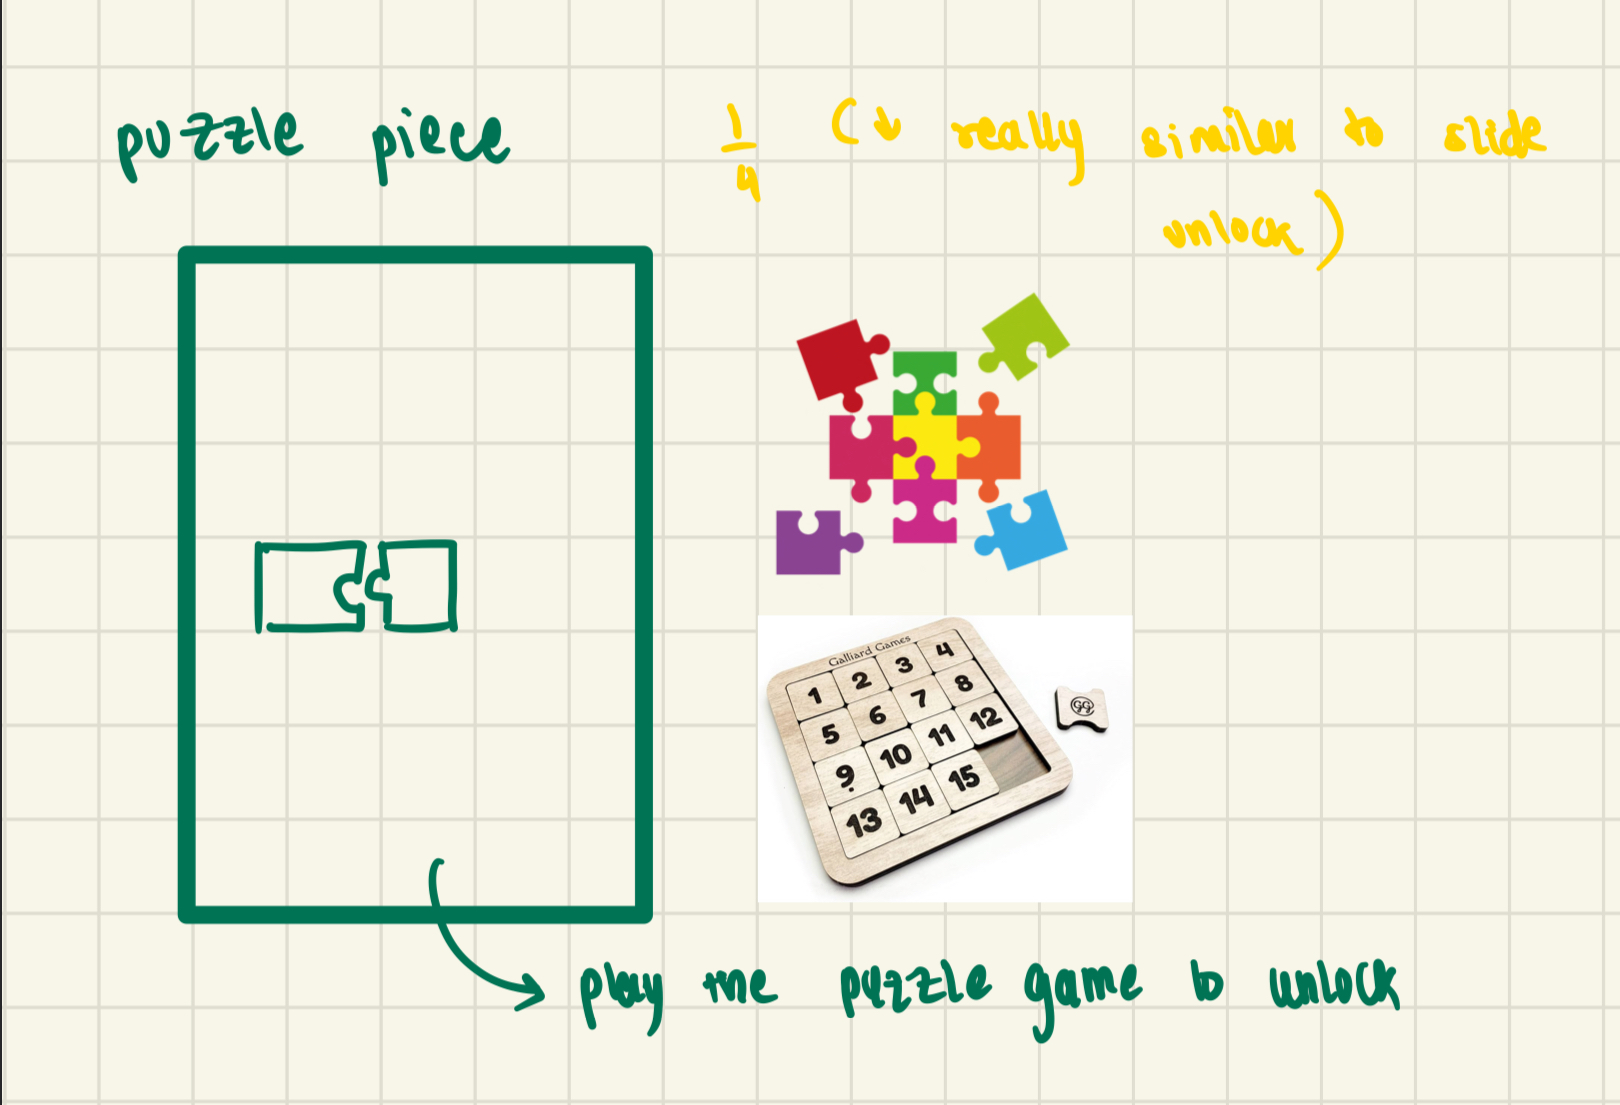 puzzle piece
1/4 (↓ really similar to slide
unlock)
Galliard Games
1 2 3 4
5 6 7 8
9 10 11 12
13 14 15
GG
play the puzzle game to unlock